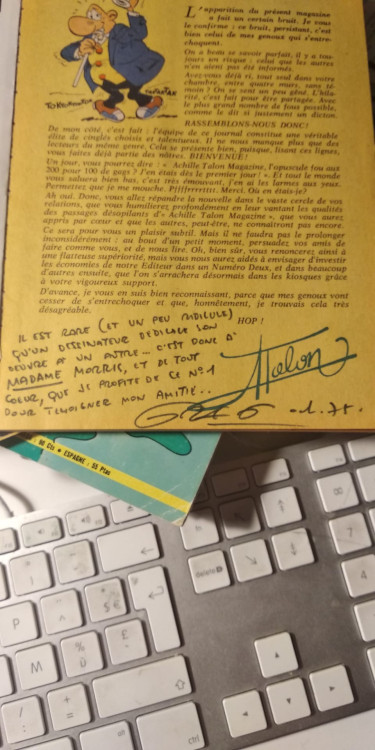 L'apparition du présent magazine
a fait un certain bruit. Je vous
le confirme : ce bruit, persistant, c'est
bien celui de mes genoux qui s'entre-
choquent.
On a beau se savoir parfait, il y a tou-
jours un risque : celui que les autres
n'en aient pas été informés.
Avez-vous déjà ri, tout seul dans votre
chambre, entre quatre murs, sans té-
moin ? On se sent un peu gêné. L'hila-
rité, c'est fait pour être partagée. Avec
le plus grand nombre de fous possible,
comme le dit si justement un dicton.
RASSEMBLONS-NOUS DONC!
De mon côté, c'est fait : l'équipe de ce journal constitue une véritable
élite de cinglés choisis et talentueux. Il ne nous manque plus que des
lecteurs du même genre. Cela se présente bien, puisque, lisant ces lignes,
vous faites déjà partie des nôtres. BIENVENUE!
Un jour, vous pourrez dire : « Achille Talon Magazine, l'opuscule fou aux
200 pour 100 de gags ? J'en étais dès le premier jour! » Et tout le monde
vous saluera bien bas, c'est très émouvant, j'en ai les larmes aux yeux.
Permettez que je me mouche. Pffffrrrttt. Merci. Où en étais-je?
Ah oui. Donc, vous allez répandre la nouvelle dans le vaste cercle de vos
relations, que vous humilierez profondément en leur vantant les qualités
des passages désopilants d'« Achille Talon Magazine », que vous aurez
appris par cœur et que les autres, peut-être, ne connaîtront pas encore.
Ce sera pour vous un plaisir subtil. Mais il ne faudra pas le prolonger
inconsidérément : au bout d'un petit moment, persuadez vos amis de
faire comme vous, et de nous lire. Oh, bien sûr, vous renoncerez ainsi à
une flatteuse supériorité, mais vous nous aurez aidés à envisager d'investir
les économies de notre Editeur dans un Numéro Deux, et dans beaucoup
d'autres ensuite, que l'on s'arrachera désormais dans les kiosques grâce
à votre vigoureux support.
D'avance, je vous en suis bien reconnaissant, parce que mes genoux vont
cesser de s'entrechoquer et que, honnêtement, je trouvais cela très
désagréable.
HOP !
IL EST RARE (ET UN PEU RIDICULE)
QU'UN DESSINATEUR DEDICACE SON
OEUVRE A UN AUTRE... C'EST DONC A
MADAME MORRIS, ET DE TOUT
COEUR, QUE JE PROFITE DE CE N°1
POUR TEMOIGNER MON AMITIE..
ATalon
GREG -1.75.
90 Cts ★ ESPAGNE : 55 Ptas
delete
P
M
%
ù
£
$
€
8
7
4
ctrl